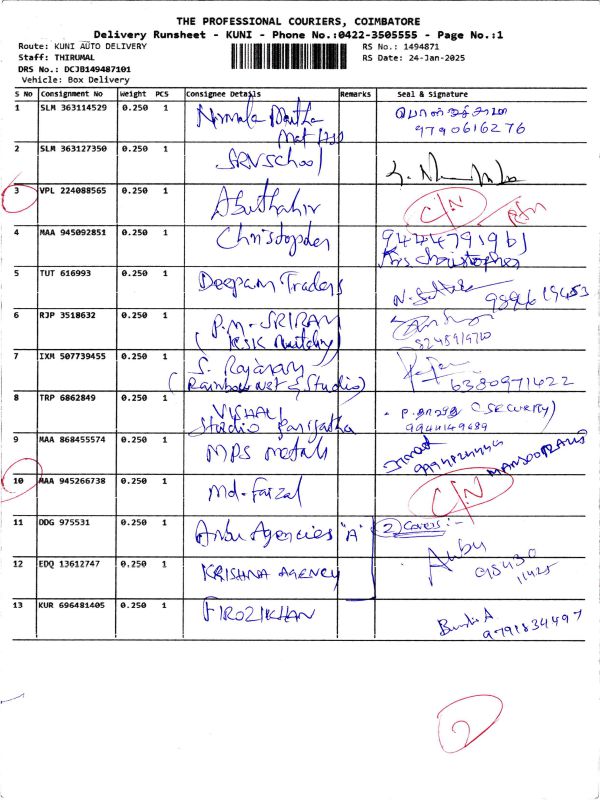 THE PROFESSIONAL COURIERS, COIMBATORE
Delivery Runsheet - KUNI - Phone No.:0422-3505555 - Page No.:1
Route: KUNI AUTO DELIVERY
RS No.: 1494871
Staff: THIRUMAL
RS Date: 24-Jan-2025
DRS No.: DCJB149487101
Vehicle: Box Delivery
S No Consignment No Weight PCS Consignee Details Remarks Seal & Signature
1 SLM 363114529 0.250 1 Nirmala Matha Mat HSS
9790616276
2 SLM 363127350 0.250 1 SRV School
3 VPL 224088565 0.250 1 Abuthahir C/N
4 MAA 945092851 0.250 1 Christopher 9444791961
Christopher
5 TUT 616993 0.250 1 Deepam Traders
6 RJP 3518632 0.250 1 P.M. SRIRAM
7 IXM 507739455 0.250 1 S. Rajaram 6380971422
(Rainbow net & Studio)
8 TRP 6862849 0.250 1 VISHALI (SECURITY)
Studio 9944149689
9 MAA 868455574 0.250 1 MPS metals
10 MAA 945266738 0.250 1 Md-Faizal C/N
11 DDG 975531 0.250 1 Anbu Agencies "A" (2) Covers :-
12 EDQ 13612747 0.250 1 KRISHNA AGENCY Anbu
98430
11425
13 KUR 696481405 0.250 1 FIROZIKHAN
9791834497
2